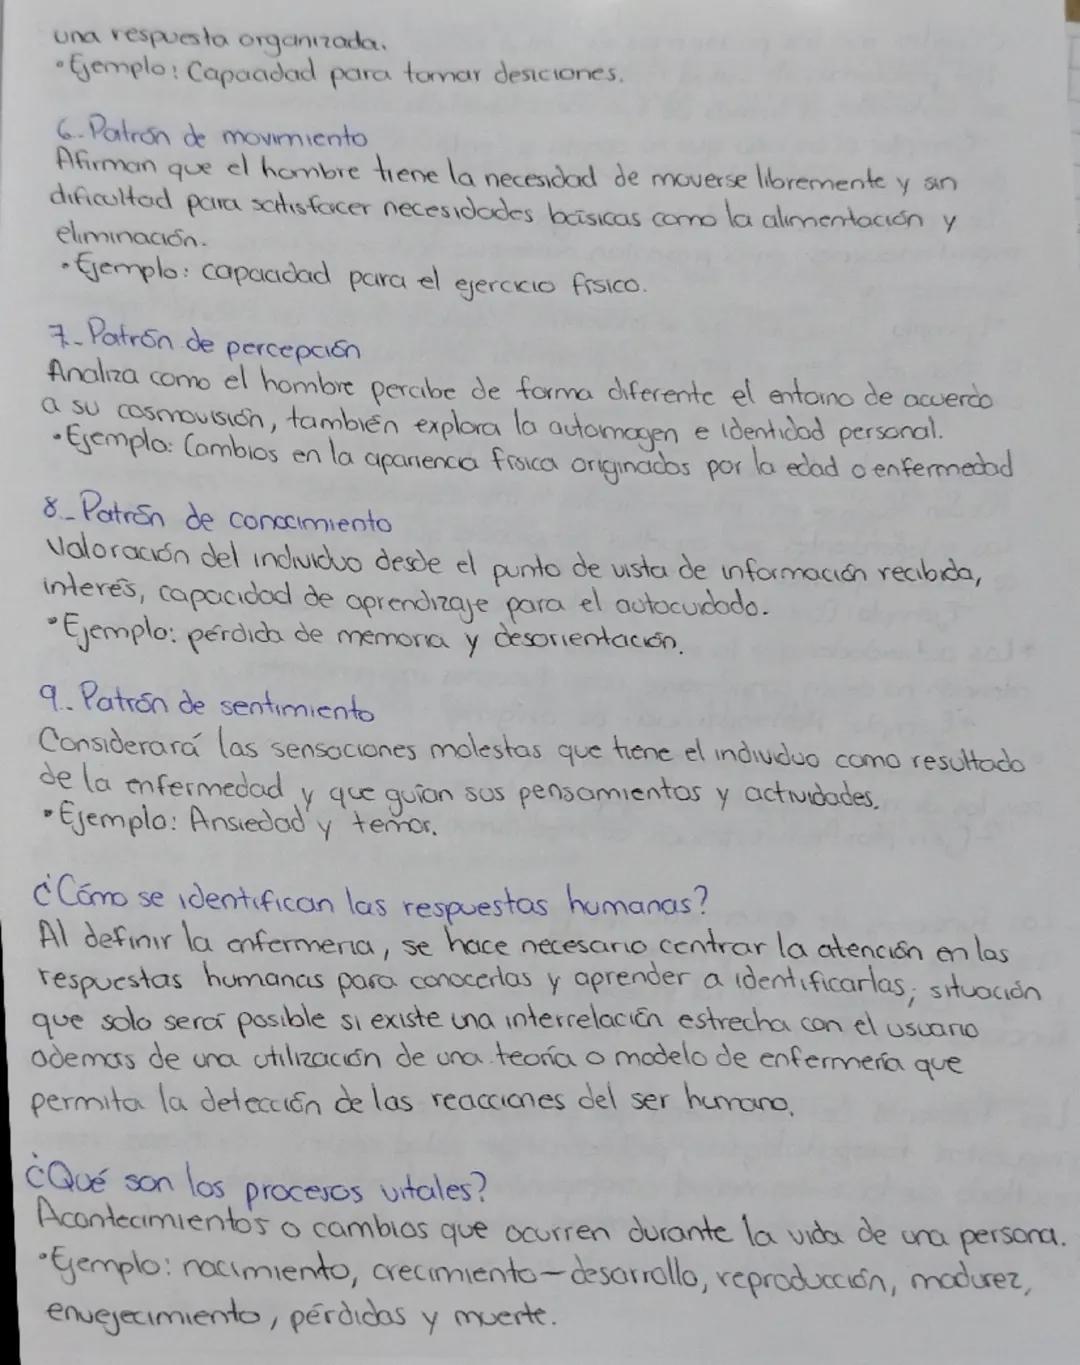 una respuesta organizada.
• Ejemplo: Capacidad para tomar desiciones.
6.- Patrón de movimiento
Afirman que el hombre tiene la necesidad de moverse libremente y sin
dificultad para satisfacer necesidades básicas como la alimentación y
eliminación.
• Ejemplo: capacidad para el ejercicio físico.
7.- Patrón de percepción
Analiza como el hombre percibe de forma diferente el entorno de acuerdo
a su cosmovisión, también explora la autoimagen e identidad personal.
• Ejemplo: Cambios en la apariencia física originados por la edad o enfermedad
8.- Patrón de conocimiento
Valoración del individuo desde el punto de vista de información recibida,
interés, capacidad de aprendizaje para el autocuidado.
• Ejemplo: pérdida de memoria y desorientación.
9.- Patrón de sentimiento
Considerará las sensaciones molestas que tiene el individuo como resultado
de la enfermedad y que guían sus pensamientos y actividades.
• Ejemplo: Ansiedad y temor.
¿Cómo se identifican las respuestas humanas?
Al definir la enfermería, se hace necesario centrar la atención en las
respuestas humanas para conocerlas y aprender a identificarlas; situación
que solo será posible si existe una interrelación estrecha con el usuario
además de una utilización de una teoría o modelo de enfermería que
permita la detección de las reacciones del ser humano.
¿Qué son los procesos vitales?
Acontecimientos o cambios que ocurren durante la vida de una persona.
• Ejemplo: nacimiento, crecimiento-desarrollo, reproducción, madurez,
envejecimiento, pérdidas y muerte.